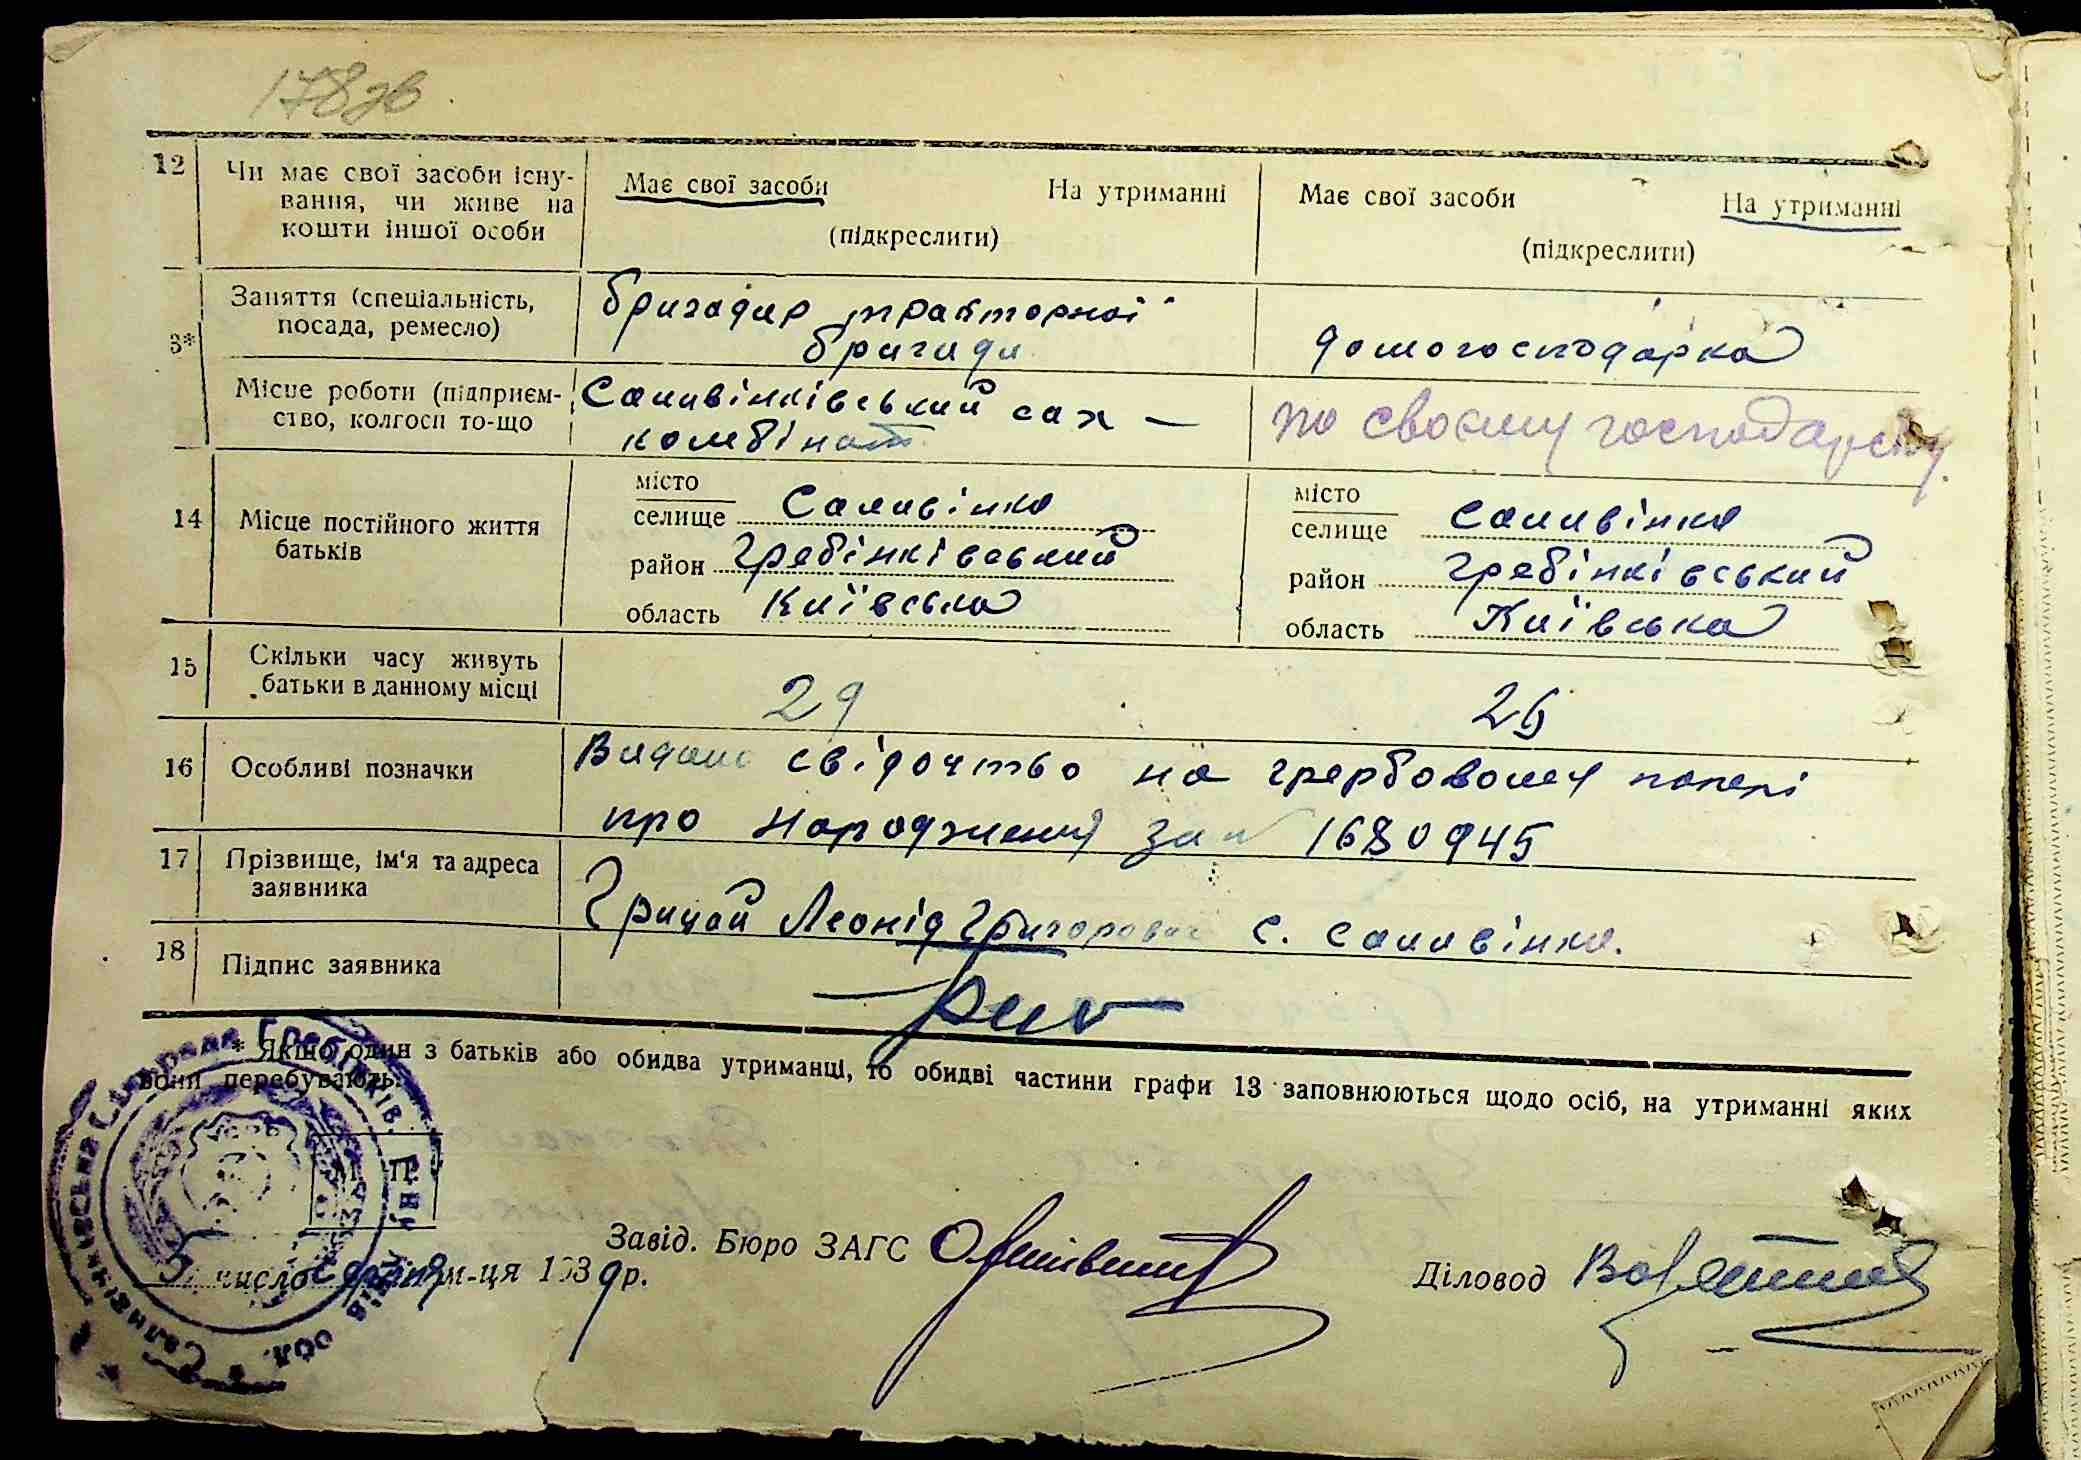 178зв
12 Чи має свої засоби існу-
вання, чи живе на
кошти іншої особи
Має свої засоби На утриманні
(підкреслити)
Має свої засоби На утриманні
(підкреслити)
3*
Заняття (спеціальність,
посада, ремесло)
бригадир тракторної
бригади
домогосподарка
Місце роботи (підприєм-
ство, колгосп то-що
Саливінківський сах –
комбінат
по своєму господарству.
14 Місце постійного життя
батьків
місто
селище Саливінка
район Гребінківський
область Київська
місто
селище Саливінка
район Гребінківський
область Київська
15 Скільки часу живуть
батьки в данному місці
29
26
16 Особливі позначки
Видано свідочтво на гербовому папері
про народження за № 1680945
17 Прізвище, ім'я та адреса
заявника
Грицай Леонід Григорович с. Саливінки.
18 Підпис заявника
* Якщо один з батьків або обидва утриманці, то обидві частини графи 13 заповнюються щодо осіб, на утриманні яких
вони перебувають.
М. П.
число серпня м-ця 1939 р.
Завід. Бюро ЗАГС
Діловод